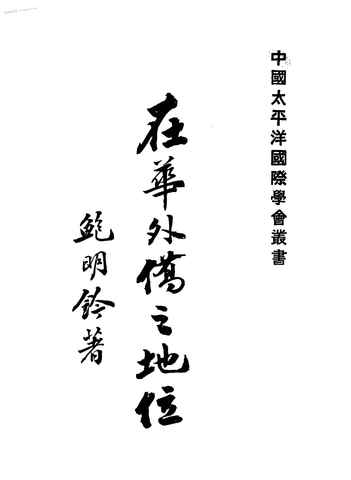 中國太平洋國際學會叢書
在華外僑之地位
鮑明鈐著